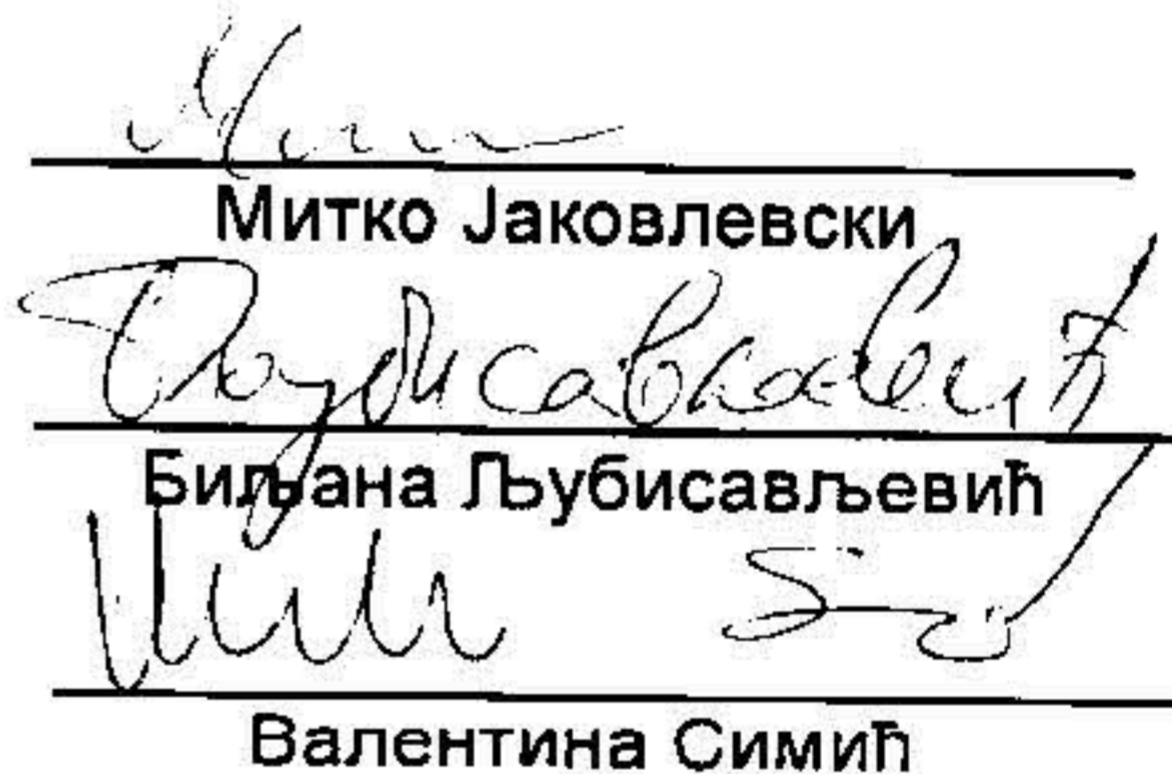 Митко Јаковлевски
Љубисављевић
Биљана Љубисављевић
Валентина Симић